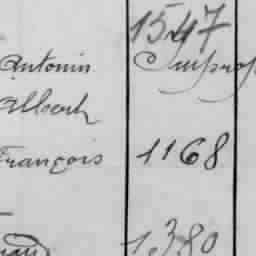 1547
Antonin
Albert
François 1168
1380